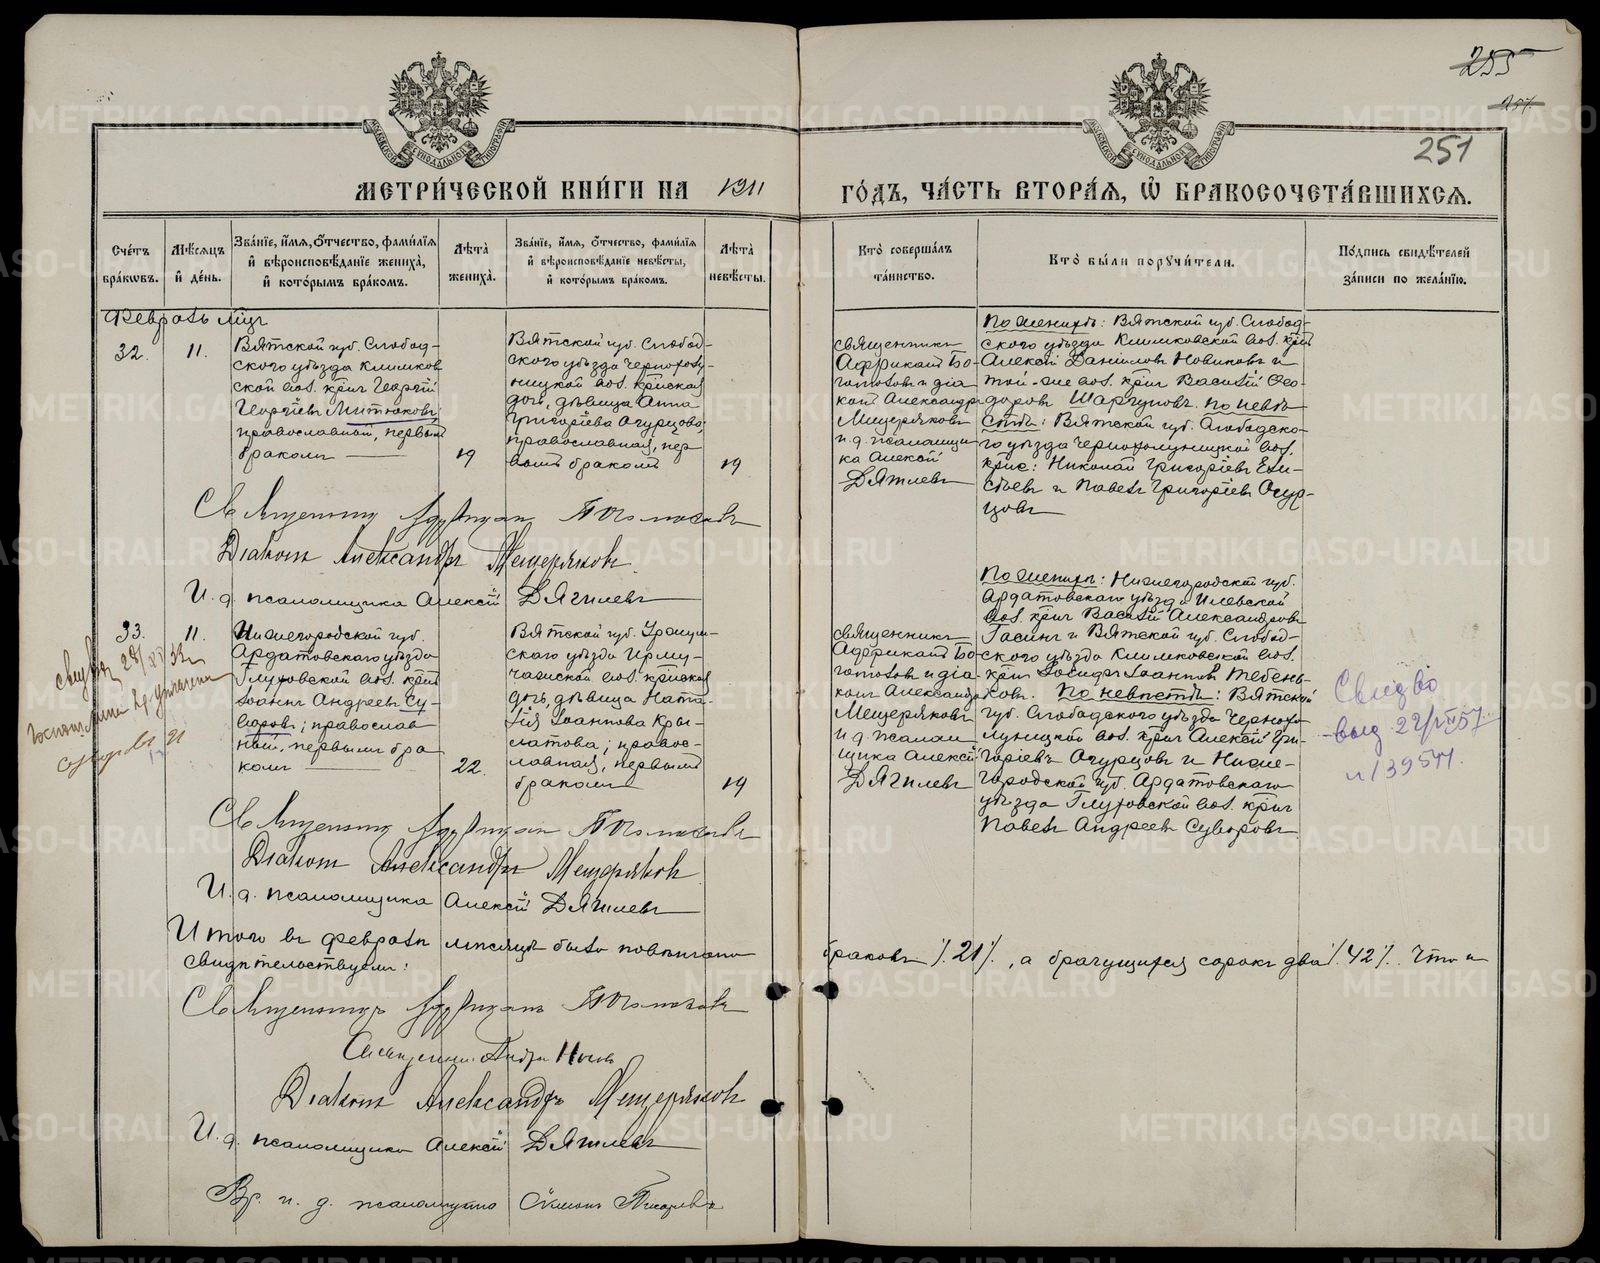 255
257.
251
МЕТРИ́ЧЕСКОЙ КНИ́ГИ НА 1911 ГО́ДЪ, ЧА́СТЬ ВТОРА́Я, Ѽ БРАКОСОЧЕТА́ВШИХСЯ.
Сче́тъ бра́кѡвъ.
Мѣ́сяцъ и́ де́нь.
Зва́нїе, и́мя, ѻ́тчество, фами́лїя и́ вѣроисповѣ́данїе жениха̀, и́ кото́рымъ бра́комъ.
Лѣ́та̀ жениха̀.
Зва́нїе, и́мя, ѻ́тчество, фами́лїя и́ вѣроисповѣ́данїе невѣ́сты, и́ кото́рымъ бра́комъ.
Лѣ́та̀ невѣ́сты.
Кто̀ соверша́лъ та́инство.
Кто̀ бы́ли порꙋчи́тели.
По́дпись свидѣ́телей за́писи по жела́нїю.
Февраль мц
32.
11.
Вятской губ. Слобод-
ского уѣзда Климков
ской вол. крнъ Георгій
Георгіевъ Митюковъ
православный, первымъ
бракомъ
19
Вятской губ. Слобод-
ского уѣзда Чернохолу-
ницкой вол. крнская
дочь, дѣвица Анна
Григоріева Огурцова;
православная, пер-
вымъ бракомъ
19
священникъ
Африканъ Бо-
гомоловъ и діа
конъ Александръ
Мещеряковъ
и.д. псаломщи
ка Алексій
Дягилевъ
По женихѣ: Вятской губ. Слобод-
ского уѣзда Климковской вол. крнъ
Алексій Даніиловъ Новиковъ и
той-же вол. крнъ Василій Ѳео-
доровъ Шаргуновъ. По невѣ-
стѣ: Вятской губ. Слободско-
го уѣзда Чернохолуницкой вол.
крне: Николай Григоріевъ Ели-
сѣевъ и Павелъ Григоріевъ Огур-
цовъ
Священникъ Африканъ Богомоловъ
Діаконъ Александръ Мещеряковъ
И. д. псаломщика Алексій Дягилевъ
33.
11.
Нижегородской губ.
Ардатовскаго уѣзда
Глуховской вол. крнъ
Іоаннъ Андреевъ Су-
воровъ; православ
ный, первымъ бра
комъ
22.
Вятской губ. Уржум-
скаго уѣзда
чашской вол. крнская
дочь, дѣвица Ната-
лія Іоаннова Кры-
латова; правос-
лавная, первымъ
бракомъ
19
священникъ
Африканъ Бо-
гомоловъ и діа-
конъ Александръ
Мещеряковъ
и д. псалом
щика Алексій
Дягилевъ
По женихѣ: Нижегородской губ.
Ардатовскаго уѣзда Илевской
вол. крнъ Василій Александровъ
Гасинъ и Вятской губ. Слобод-
ского уѣзда Климковской вол.
крнъ Іосифъ Іоанновъ Тебень-
ковъ. По невѣстѣ: Вятской
губ. Слободского уѣзда Чернохо-
луницкой вол. крнъ Алексій Гри-
горіевъ Огурцовъ и Ниже-
городской губ. Ардатовскаго
уѣзда Глуховской вол. крнъ
Павелъ Андреевъ Суворовъ
Свид-во
выд 22/VIII 57
Священникъ Африканъ Богомоловъ
Діаконъ Александръ Мещеряковъ
И. д. псаломщика Алексій Дягилевъ
Итого въ февралѣ мѣсяцѣ было повѣнчано браковъ /.21/., а брачущихся сорокъ два /.42/. Что и
свидѣтельствуемъ:
Священникъ Африканъ Богомоловъ
Священникъ
Діаконъ Александръ Мещеряковъ
И. д. псаломщика Алексій Дягилевъ
Вр. и. д. псаломщика
METRIKI.GASO-URAL.RU